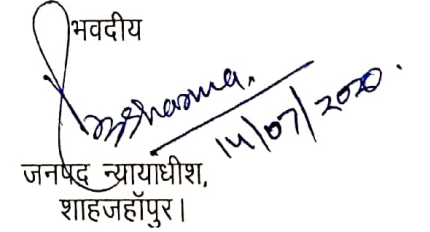 भवदीय
Sharma.
14/07/2020.
जनपद न्यायाधीश,
शाहजहाँपुर।